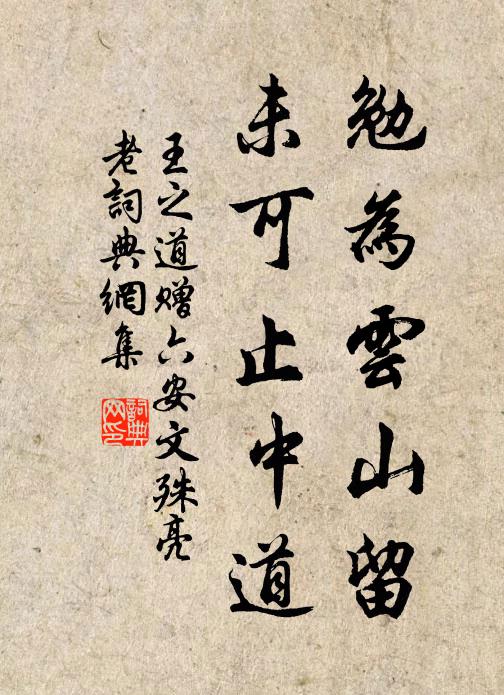 勉為雲山留
未可止中道
王之道贈六安文殊亮
老詞典網集
詞典
网印